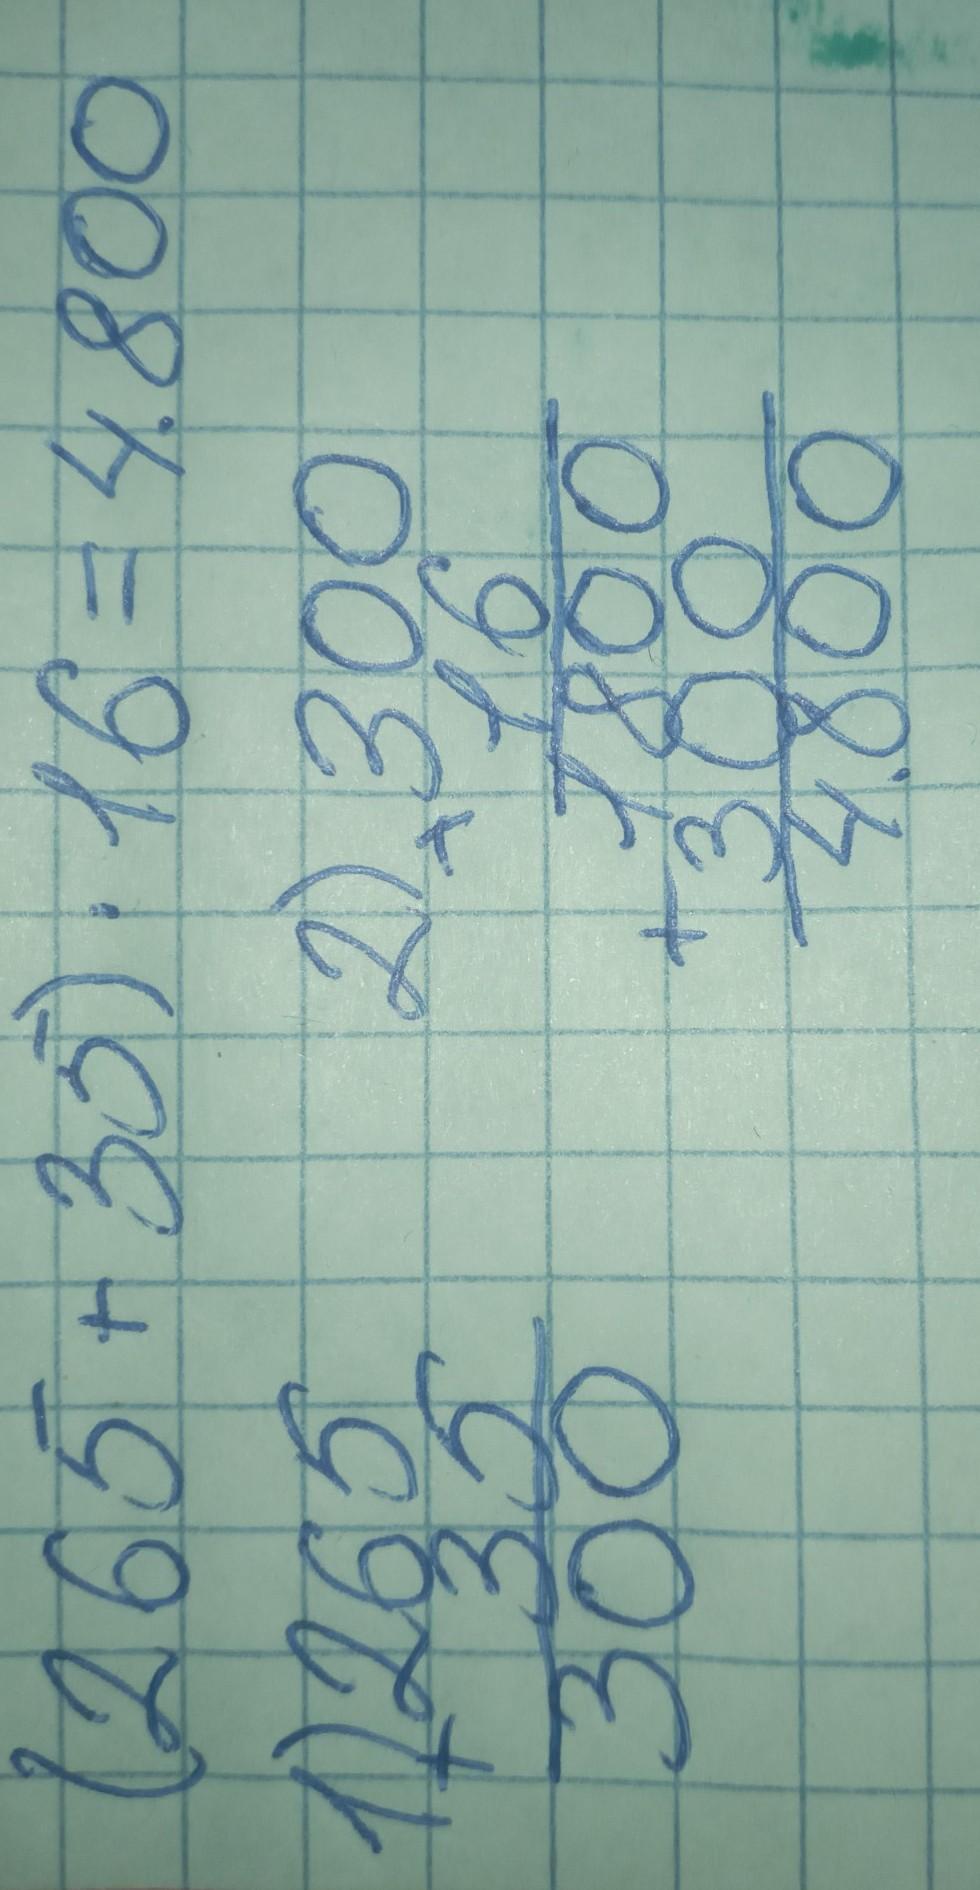 (265+35)·16=4.800
1) 265
+ 35
300
2) 300
+ 16
1800
+ 300
4.800